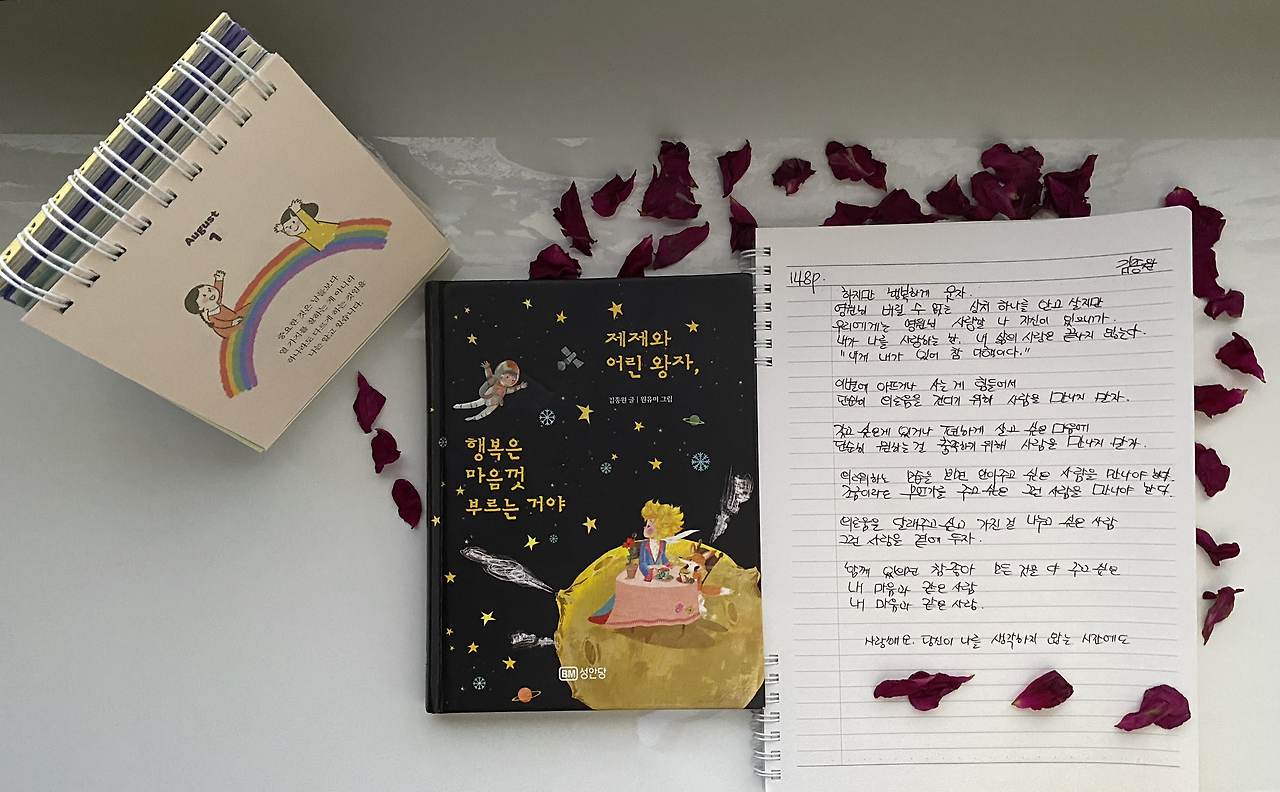 August
1
중요한 것은 남들보다
열 가지를 잘하는 게 아니라
하나라도 다르게 하는 것임을
나는 알고 있습니다.
제제와
어린 왕자,
김종원 글 | 원유미 그림
행복은
마음껏
부르는 거야
BM 성안당
148p.
김종원
하지만 행복하게 웃자.
영원히 버릴 수 없는 상처 하나를 안고 살지만
우리에게는 영원히 사랑할 나 자신이 있으니까.
내가 나를 사랑하는 한, 내 삶의 사랑은 끝나지 않는다.
"내게 내가 있어 참 다행이다."
이번에 아프거나 사는 게 힘들어서
단순히 외로움을 견디기 위해 사람을 만나지 말자.
갖고 싶은게 있거나 편하게 살고 싶은 마음에
단순히 원하는 걸 충족하기 위해 사람을 만나지 말자.
외로워하는 모습을 보면 안아주고 싶은 사람을 만나야 한다.
조금이라도 온기를 주고 싶은 그런 사람을 만나야 한다.
외로움을 달래주고 싶고 가진 걸 나누고 싶은 사람
그런 사람을 곁에 두자.
함께 있으면 참 좋아 모든 것을 다 주고 싶은
내 마음과 같은 사람
내 마음과 같은 사람.
사랑해요. 당신이 나를 생각하지 않는 시간에도